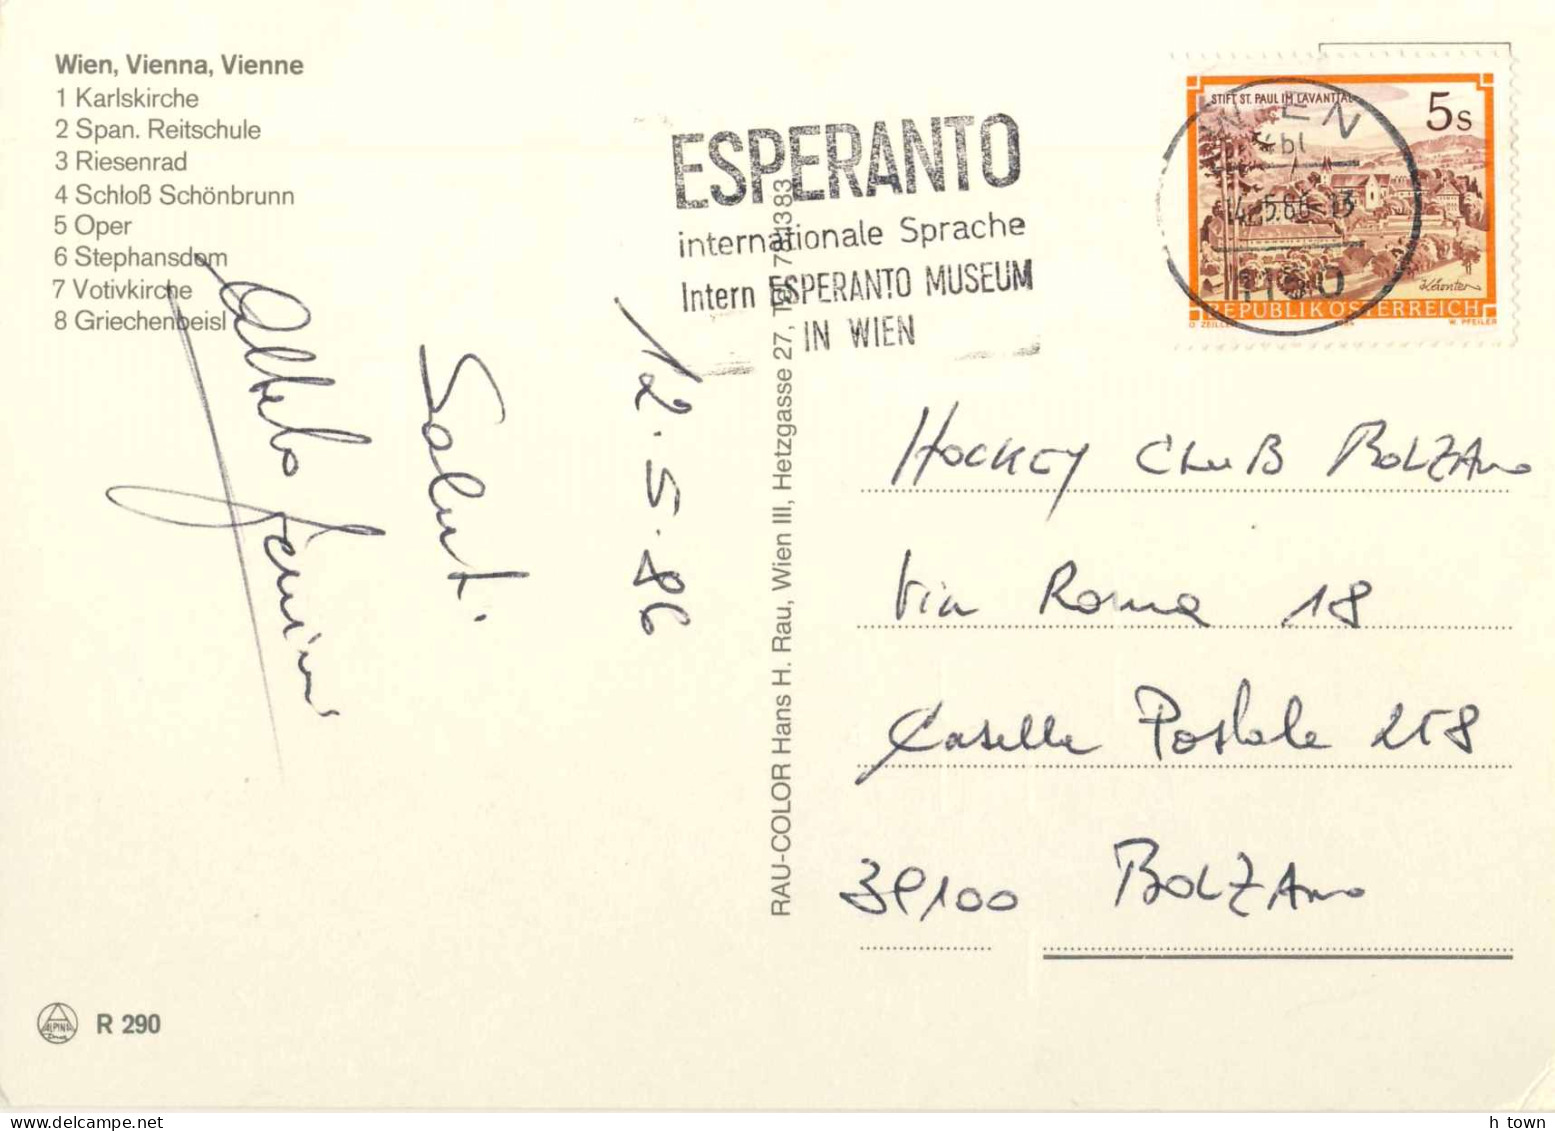 Wien, Vienna, Vienne
1 Karlskirche
2 Span. Reitschule
3 Riesenrad
4 Schloß Schönbrunn
5 Oper
6 Stephansdom
7 Votivkirche
8 Griechenbeisl
ESPERANTO
internationale Sprache
Intern ESPERANTO MUSEUM
IN WIEN
STIFT ST. PAUL IM LAVANTTAL
5s
REPUBLIK ÖSTERREICH
W. PFEILER
WIEN
14.-5.86-13
1150
12.5.86
Saluti
RAU-COLOR Hans H. Rau, Wien III, Hetzgasse 27,
HOCKEY CLUB BOLZANO
Via Roma 18
Casella Postale 258
39100 BOLZANO
ALPINA
R 290
h town